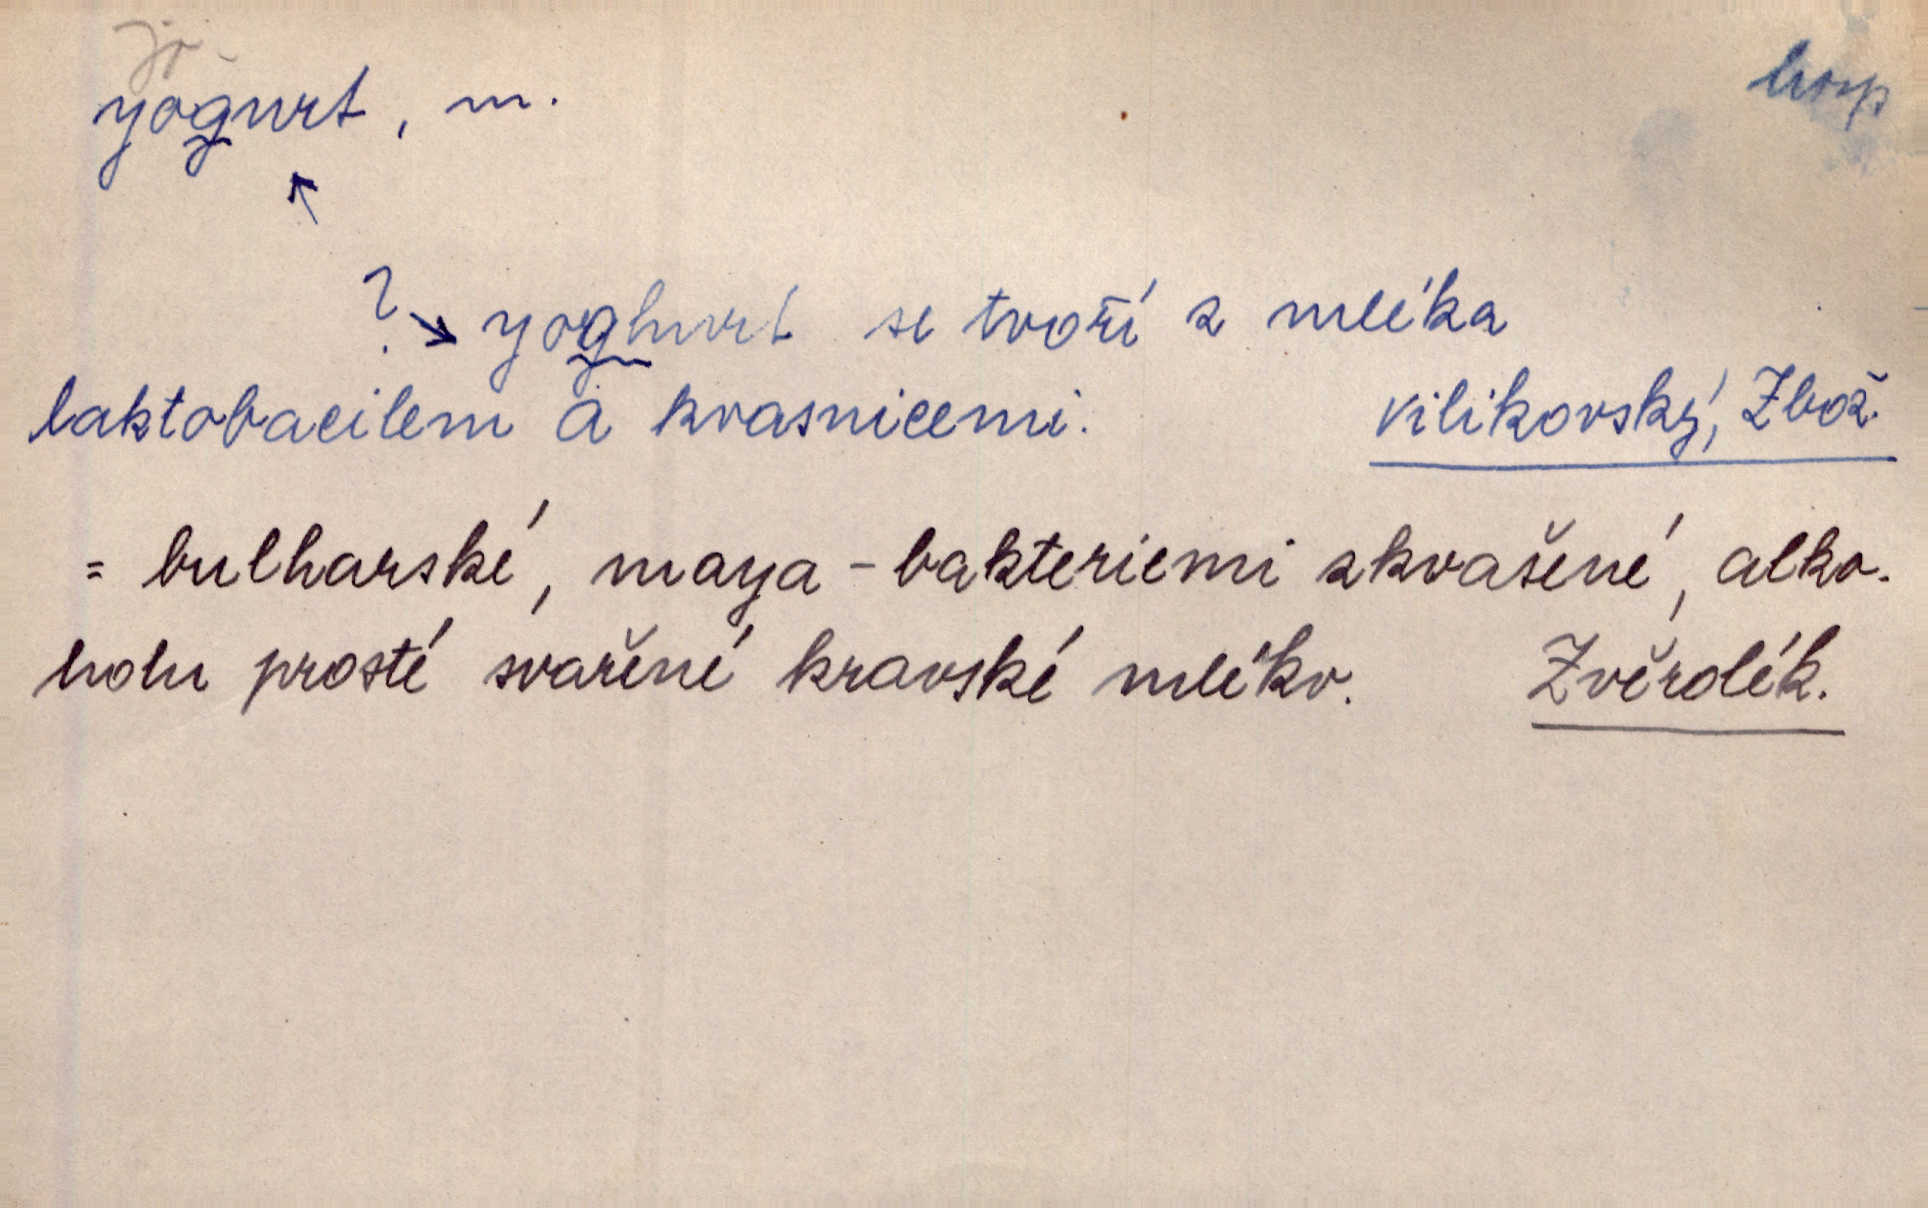 jo-
yogurt, m.
hosp
? yoghurt se tvoří z mléka
laktobacilem a kvasnicemi. Vilikovský, Zbož.
= bulharské, maya-bakteriemi zkvašené, alko-
holu prosté svařené kravské mléko. Zvěrolék.